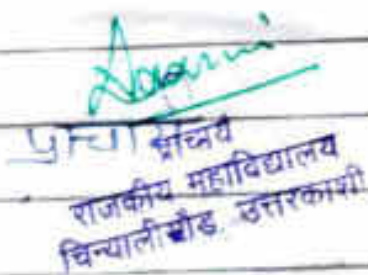 प्राचार्य
राजकीय महाविद्यालय
चिन्यालीसौड, उत्तरकाशी